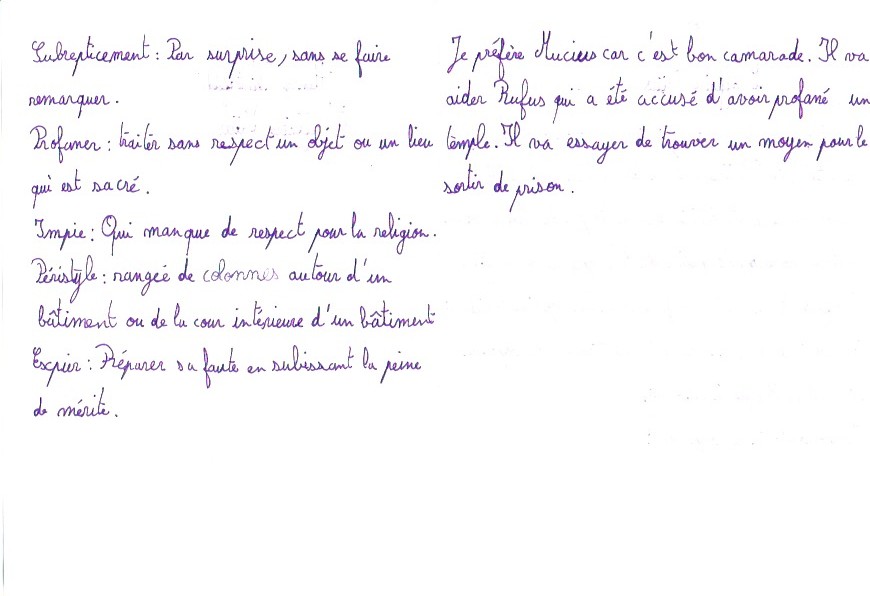 Subrepticement : Par surprise, sans se faire
remarquer.
Profaner : traiter sans respect un objet ou un lieu
qui est sacré.
Impie : Qui manque de respect pour la religion.
Péristyle : rangée de colonnes autour d'un
bâtiment ou de la cour intérieure d'un bâtiment
Expier : Préparer sa faute en subissant la peine
de mérite.
Je préfère Mucius car c'est bon camarade. Il va
aider Rufus qui a été accusé d'avoir profané un
temple. Il va essayer de trouver un moyen pour le
sortir de prison.